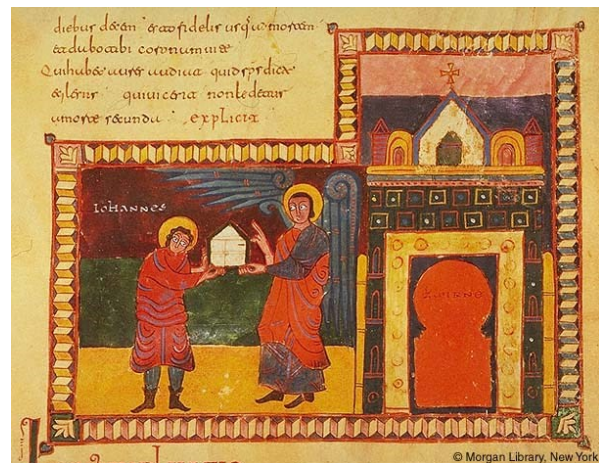 diebus decem esto fidelis usq mortem
et dabo tibi coronam uite
Qui habet aurem audiat quid sps dicat
eclesiis qui uicerit non ledetur
a morte secunda explicit
IOHANNES
© Morgan Library, New York